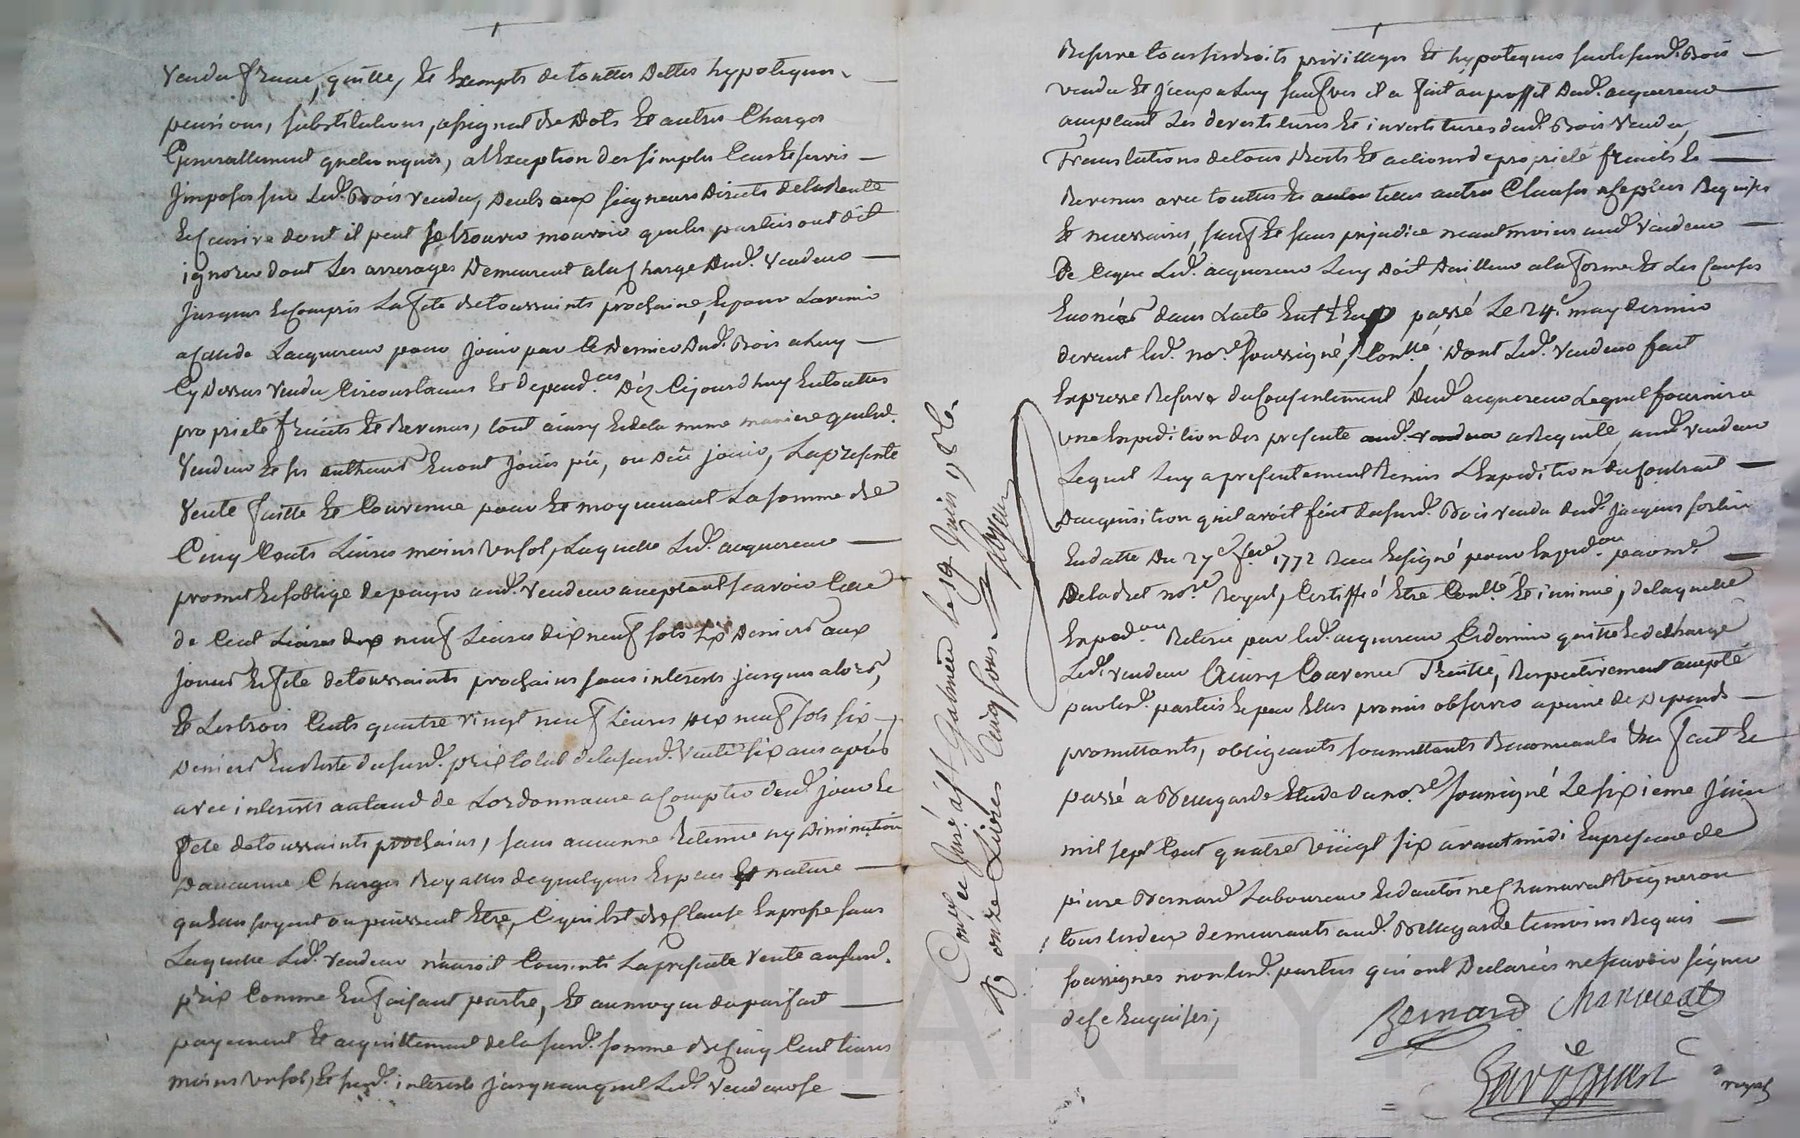 vendu franc, quitte, et Exempts de touttes dettes hypoteques,
pensions, substitutions, assignat de dots Et autres Charges
Generallement quelconques, a lException des simples Cens et servis
Imposés sur Led. Bois vendu, deubs aux seigneurs Directs de la Rente
Et Censive dont il peut se trouver mouvoir que les parties ont dit
ignorer dont Les arrerages Demeurent a la Charge dud. vendeur
jusques Et Compris La fete de toussaints prochaine, Et pour Lavenir
a Celle de Lacquereur pour jouir par Ce dernier dud. Bois a Luy
Cy dessus vendu Circonstances Et depend.ces Dèz Cejourdhuy En touttes
proprieté fruits Et Revenus, tout ainsy Et de la même maniere que led.
vendeur Et ses autheurs En ont jouis pû, ou deû jouir, La presente
vente faitte Et Convenue pour Et moyennant La somme de
Cinq Cents Livres moins un sol, Laquelle Led. acquereur
promet Et soblige de payer aud. vendeur acceptant scavoir Celle
de Cent Livres dix neuf Livres dix neuf sols six Deniers aux
jour Et fete de toussaints prochains sans interests jusques alors,
Et Les trois Cents quatre vingt neuf Livres dix neuf sols six
deniers En Reste dususd. prix total de la susd. vente six ans après
avec interests au taud de Lordonnance a Compter dud. jour Et
fete de toussaints prochains, sans aucunne Retenue ny Diminution
Daucunne Charges Royalles de quelques Espece Et nature
quelles soyent ou puissent Etre, Ce qui Est de Clause Expresse sans
Laquelle Led. vendeur n'auroit Consenti La presente vente au susd.
prix Comme En faisant partie, Et au moyen du parfait
payement Et acquittement de la susd. somme de Cinq Cent Livres
moins un sol, Et susd. interests jusquauquel Led. vendeur se
Controllé Insinué a St Galmier le 19 Juin 1786.
R onze Livres Cinq sous
Reserve tous ses droits privileges Et hypoteques sur le susd. Bois
vendu Et jusqu a Luy sauf ves il a fait au proffit dud. acquereur
acceptant Les devestitures Et investitures dud. Bois vendu,
Translations de tous droits Et actions de proprieté fruits Et
Revenus avec touttes Et telles autres Clauses a ce plus Requises
Et necessaires, sauf Et sans prejudice neantmoins aud. vendeur
De Ceque Led. acquereur Luy Doit Dailleur a la forme Et Les Causes
Enoncés dans Lacte Entr Eux passé Le 24e may dernier
devant led. no.re soussigné, Con.llé. Dont Led. vendeur fait
Expresse Reserve du Consentement dud. acquereur Lequel fournira
une Expedition des presente a Requete aud. vendeur
Lequel Luy a presentement Remis LExpedition du Contrat
Dacquisition quil avoit fait dusud. Bois vendu dud. Jacques
En datte Du 27e 1772 Recu Et signé pour Exped.on par me.
no.re Royal, Certiffié Etre Con.llé Et insinué, de laquelle
Exped.on Retirée par led. acquereur Ce dernier quitte Et decharge
Led. vendeur Ainsy Convenu Traitté, Respectivement accepté
par lesd. parties Et par Elles promis observer a peine de depends
promettants, obligeants soumettants Renonceants &a fait Et
passé a Bellegarde Etude du no.re soussigné Le sixieme Juin
mil sept Cent quatre vingt six avant midi En presence de
pierre Bernard Laboureur Et dantoine Chanavat vigneron
tous les deux demeurants aud. Bellegarde temoins Requis
soussignes non lesd. parties qui ont Declarées ne scavoir signer
de ce Enquises;
Bernard Chanavat
royal
CHAREY